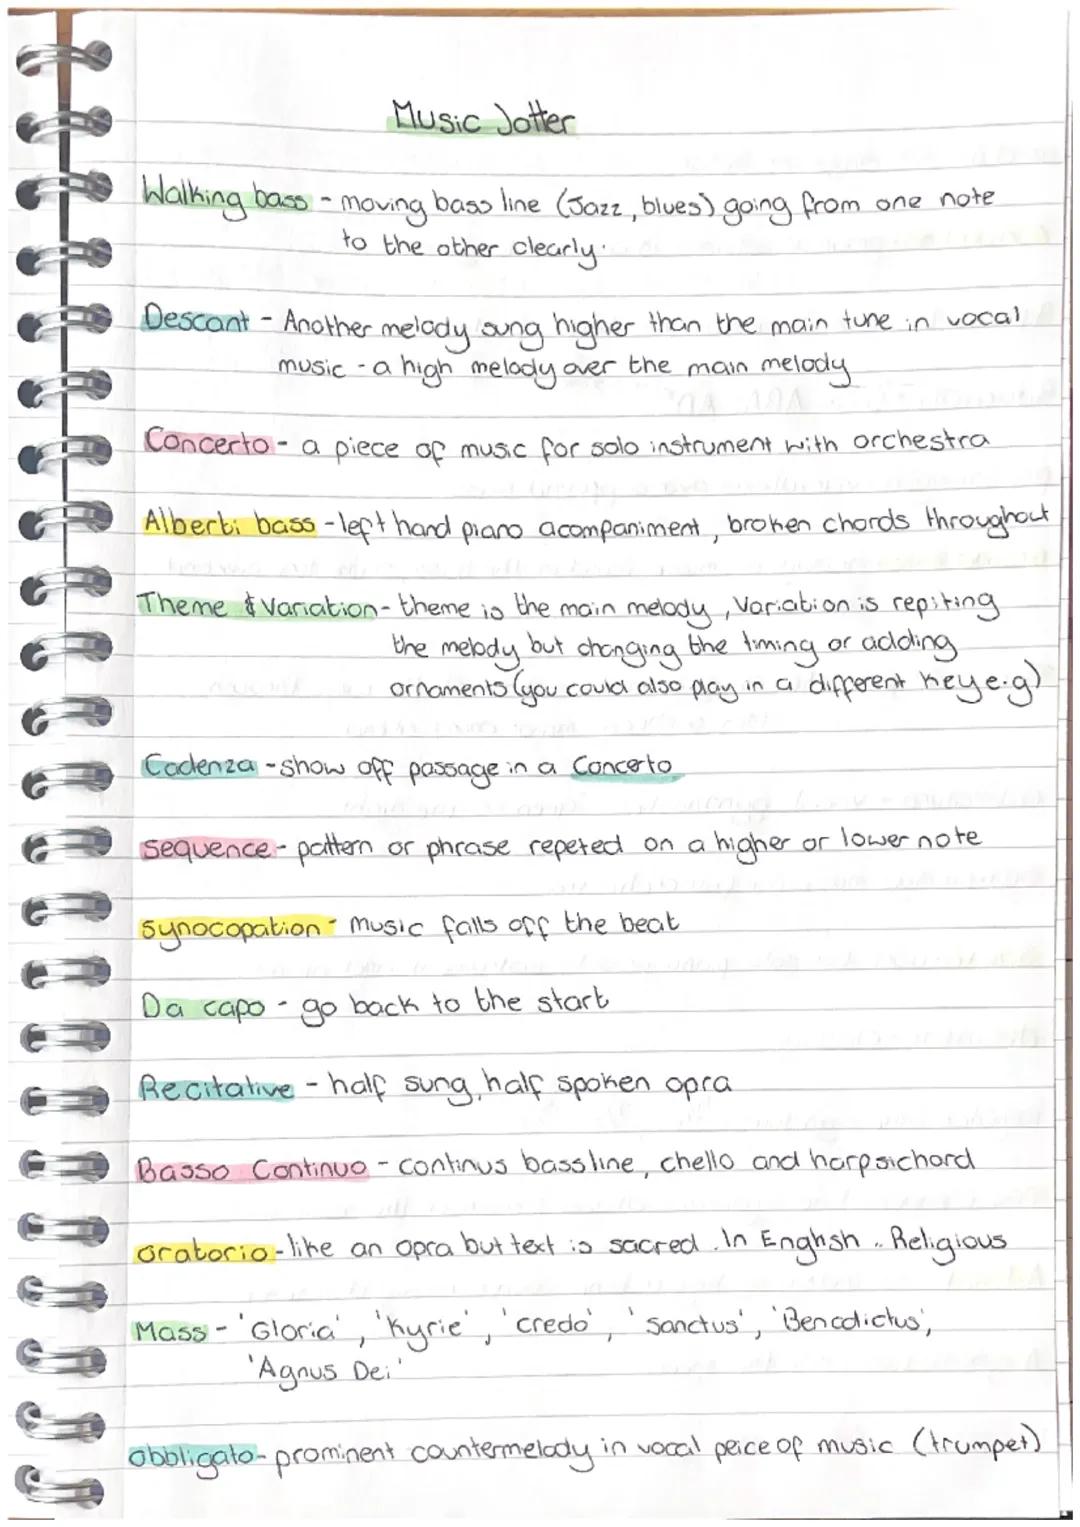 Music Jotter
Walking bass - moving bass line (Jazz, blues) going from one note
to the other clearly.
Descant - Another melody sung higher than the main tune in vocal
music - a high melody over the main melody
Concerto - a piece of music for solo instrument with orchestra
Alberti bass - left hand piano acompaniment, broken chords throughout
Theme & Variation - theme is the main melody, Variation is repiting
the melody but changing the timing or adding
ornaments (you could also play in a different key e.g)
Cadenza - show off passage in a Concerto
Sequence - pattern or phrase repeted on a higher or lower note
Synocopation - Music falls off the beat
Da capo - go back to the start
Recitative - half sung, half spoken opra
Basso Continuo - continus bassline, chello and harpsichord
oratorio - like an opra but text is sacred. In English .. Religious
Mass - 'Gloria', 'Kyrie', 'credo', 'Sanctus', 'Benedictus',
'Agnus Dei'
obbligato - prominent countermelody in vocal peice of music (trumpet)